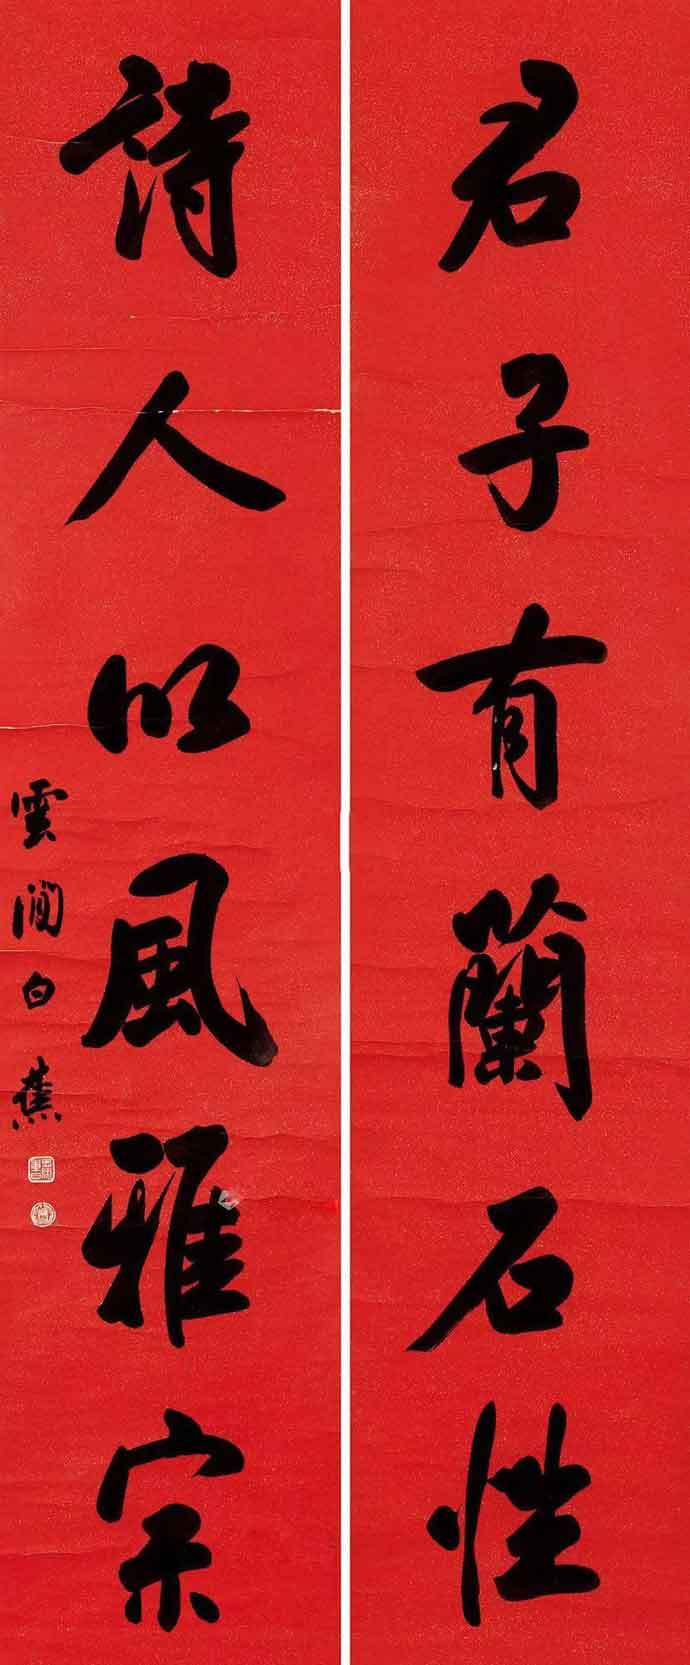 君子有蘭石性
詩人以風雅宗
雲間白蕉